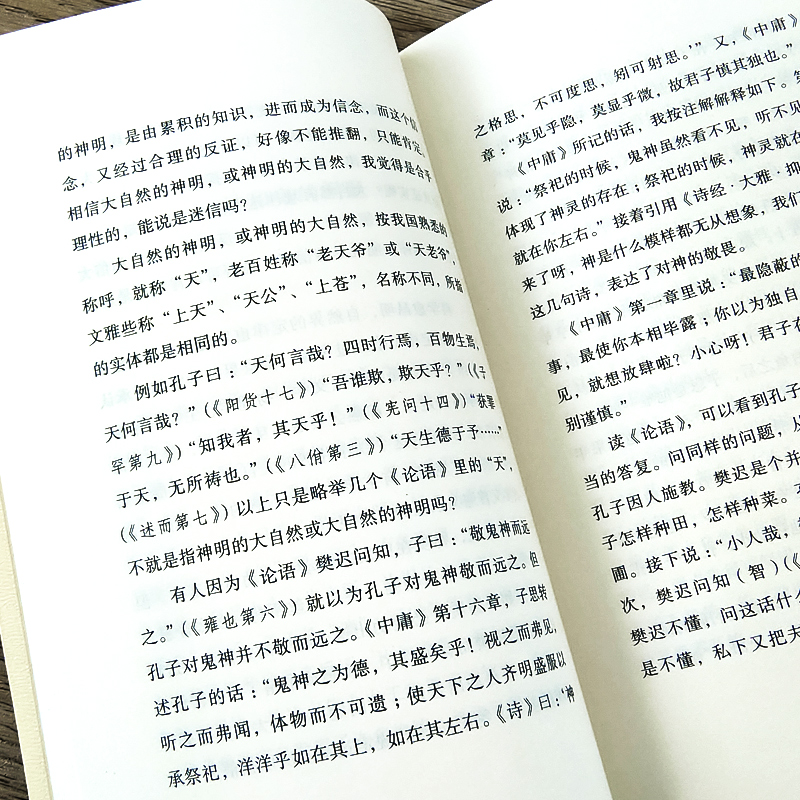 的神明，是由累积的知识，进而成为信念，而这个信
念，又经过合理的反证，好像不能推翻，只能肯定。
相信大自然的神明，或神明的大自然，我觉得是合乎
理性的，能说是迷信吗？
大自然的神明，或神明的大自然，按我国熟悉的
称呼，就称“天”，老百姓称“老天爷”或“天老爷”，
文雅些称“上天”、“天公”、“上苍”，名称不同，所指
的实体都是相同的。
例如孔子曰：“天何言哉？四时行焉，百物生焉，
天何言哉？”（《阳货十七》）“吾谁欺，欺天乎？”（《子
罕第九》）“知我者，其天乎！”（《宪问十四》）“获罪
于天，无所祷也。”（《八佾第三》）“天生德于予……”
（《述而第七》）以上只是略举几个《论语》里的“天”，
不就是指神明的大自然或大自然的神明吗？
有人因为《论语》樊迟问知，子曰：“敬鬼神而远
之。”（《雍也第六》）就以为孔子对鬼神敬而远之。但
孔子对鬼神并不敬而远之。《中庸》第十六章，子思转
述孔子的话：“鬼神之为德，其盛矣乎！视之而弗见，
听之而弗闻，体物而不可遗；使天下之人齐明盛服以
承祭祀，洋洋乎如在其上，如在其左右。《诗》曰：‘神
之格思，不可度思，矧可射思。’”又，《中庸》
章：“莫见乎隐，莫显乎微，故君子慎其独也。”
《中庸》所记的话，我按注解解释如下。
说：“祭祀的时候，鬼神虽然看不见，听不见
体现了神灵的存在；祭祀的时候，神灵就在
就在你左右。”接着引用《诗经·大雅·抑
来了呀，神是什么模样都无从想象，我们
这几句诗，表达了对神的敬畏。
《中庸》第一章里说：“最隐蔽的
事，最使你本相毕露；你以为独自
见，就想放肆啦？小心呀！君子在
别谨慎。”
读《论语》，可以看到孔子
当的答复。问同样的问题，从
孔子因人施教。樊迟是个并
子怎样种田，怎样种菜。
圃。接下说：“小人哉，
次，樊迟问知（智）（《
樊迟不懂，问这话什么
是不懂，私下又把夫